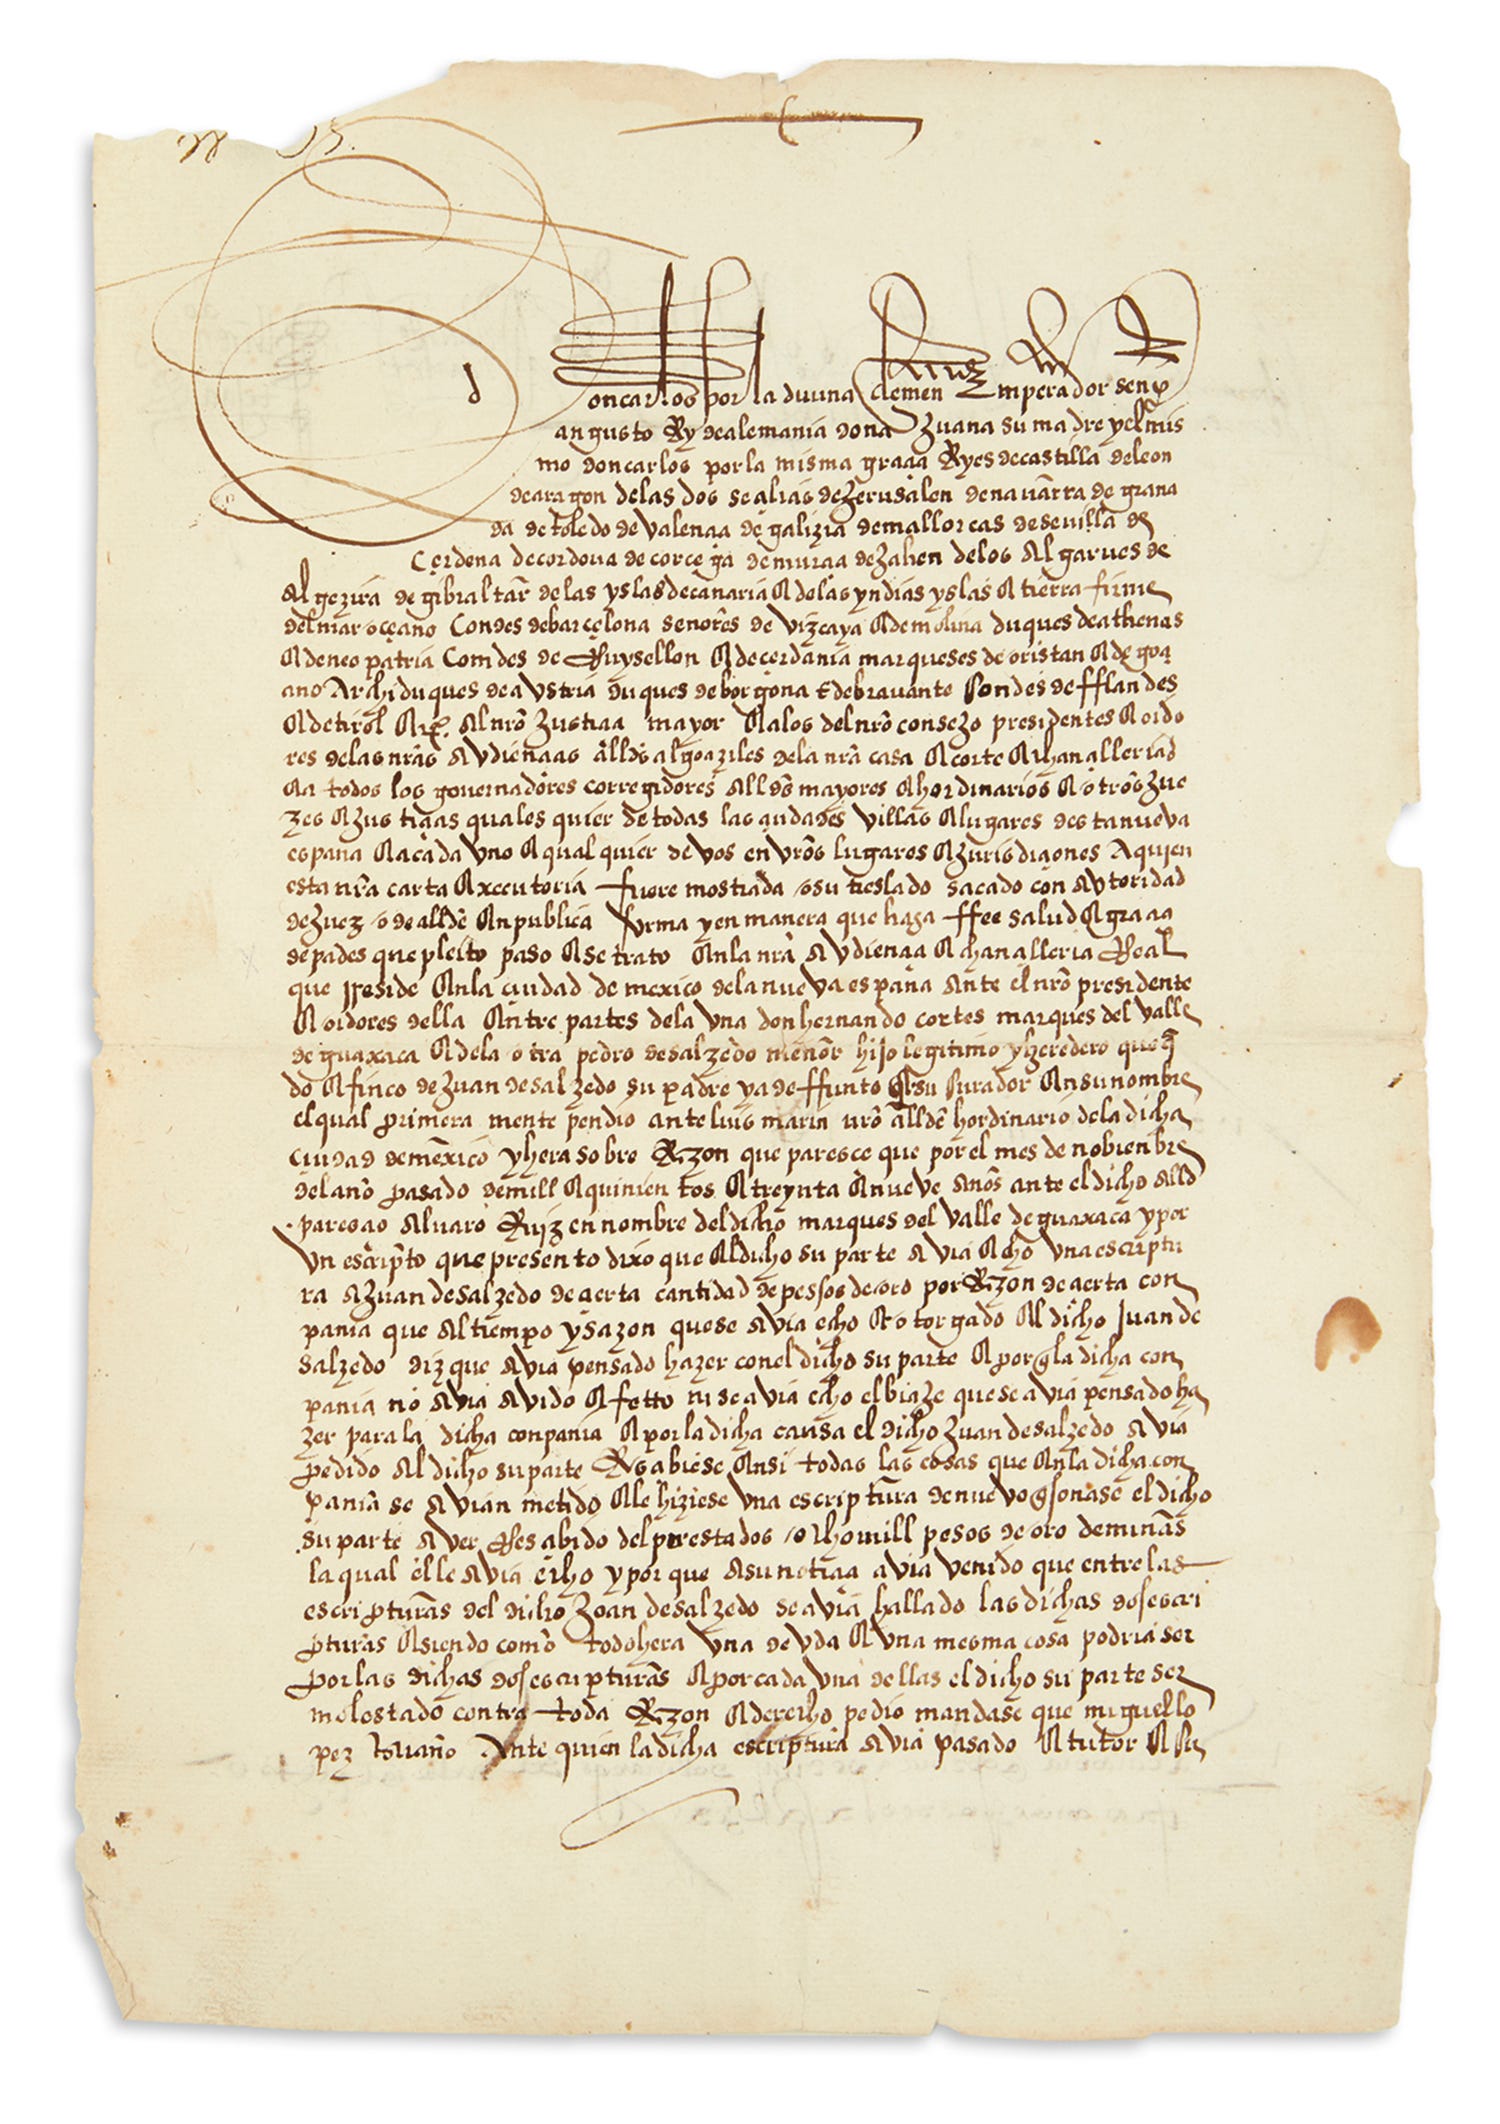 doncarlos por la diuina clemen Emperador semp
augusto Rey de alemania doña Juana su madre y el mis
mo doncarlos por la misma graçia Reyes de castilla de leon
de aragon de las dos seçilias de Jerusalen de nauarra de grana
da de toledo de Valençia de galizia de mallorcas de seuilla de
Cerdeña de cordoua de corçega de murçia de Jahen de los Algarues de
Algezira de gibraltar de las yslas de canaria E de las yndias yslas E tierra firme
del mar oçeano Condes de barçelona señores de Vizcaya E de molina duques de athenas
E de neopatria Condes de Ruysellon E de çerdania marqueses de oristan E de goçi
ano Archiduques de avstria duques de borgoña E de bravante Condes de fflandes
E de tirol Etc. Al nro Justiçia mayor E a los del nro consejo presidentes E oido
res de las nras avdiençias allds alguaziles de la nra casa E corte E chançilleria
E a todos los governadores corregidores allds mayores E hordinarios E otros Jue
zes E Justiçias quales quier de todas las çiudades Villas E lugares desta nueva
españa E a cada vno E qual quier de vos en vros lugares E jurisdiçiones A quien
esta nra carta Executoria fuere mostrada o su treslado sacado con avtoridad
de Juez o de allde En publica forma y en manera que haga ffee salud E graçia
sepades que pleito paso E se trato En la nra avdiençia E chançilleria Real
que Reside En la çiudad de mexico de la nueva españa ante el nro presidente
E oidores della Entre partes de la vna don hernando cortes marques del valle
de guaxaca E de la otra pedro de salzedo menor hijo legitimo y heredero que q
do E finco de Juan de salzedo su padre ya deffunto E su curador En su nombre
el qual primera mente pendio ante luis marin nro allde hordinario de la dicha
çiudad de mexico y hera sobre Razon que paresce que por el mes de nobienbre
del año pasado de mill E quinientos E treynta E nueve años ante el dicho alld
paresçio alvaro Ruiz en nombre del dicho marques del valle de guaxaca y por
vn escripto que presento dixo que El dicho su parte avia Echo vna escriptu
ra a Juan de salzedo de çierta cantidad de pessos de oro por Razon de çierta con
pañia que al tiempo y sazon que se avia echo E otorgado El dicho Juan de
salzedo diz que avia pensado hazer con el dicho su parte E por q la dicha con
pañia no avia avido Efetto ni se avia echo el biaje que se avia pensado ha
zer para la dicha conpañia E por la dicha causa el dicho Juan de salzedo avia
pedido al dicho su parte Resçibiese Ensi todas las cosas que En la dicha con
pañia se avian metido E le hiziese vna escriptura de nuevo q sonase el dicho
su parte aver Resçibido del prestados ocho mill pesos de oro de minas
la qual el le avia echo y por que a su notiçia avia venido que entre las
escripturas del dicho Joan de salzedo se avia hallado las dichas dos escri
pturas E siendo como todo hera vna devda E vna mesma cosa podria ser
por las dichas dos escripturas E por cada vna dellas el dicho su parte ser
molestado contra toda Razon E derecho pedio mandase que miguel lo
pez ante quien la dicha escriptura avia pasado E tutor E su